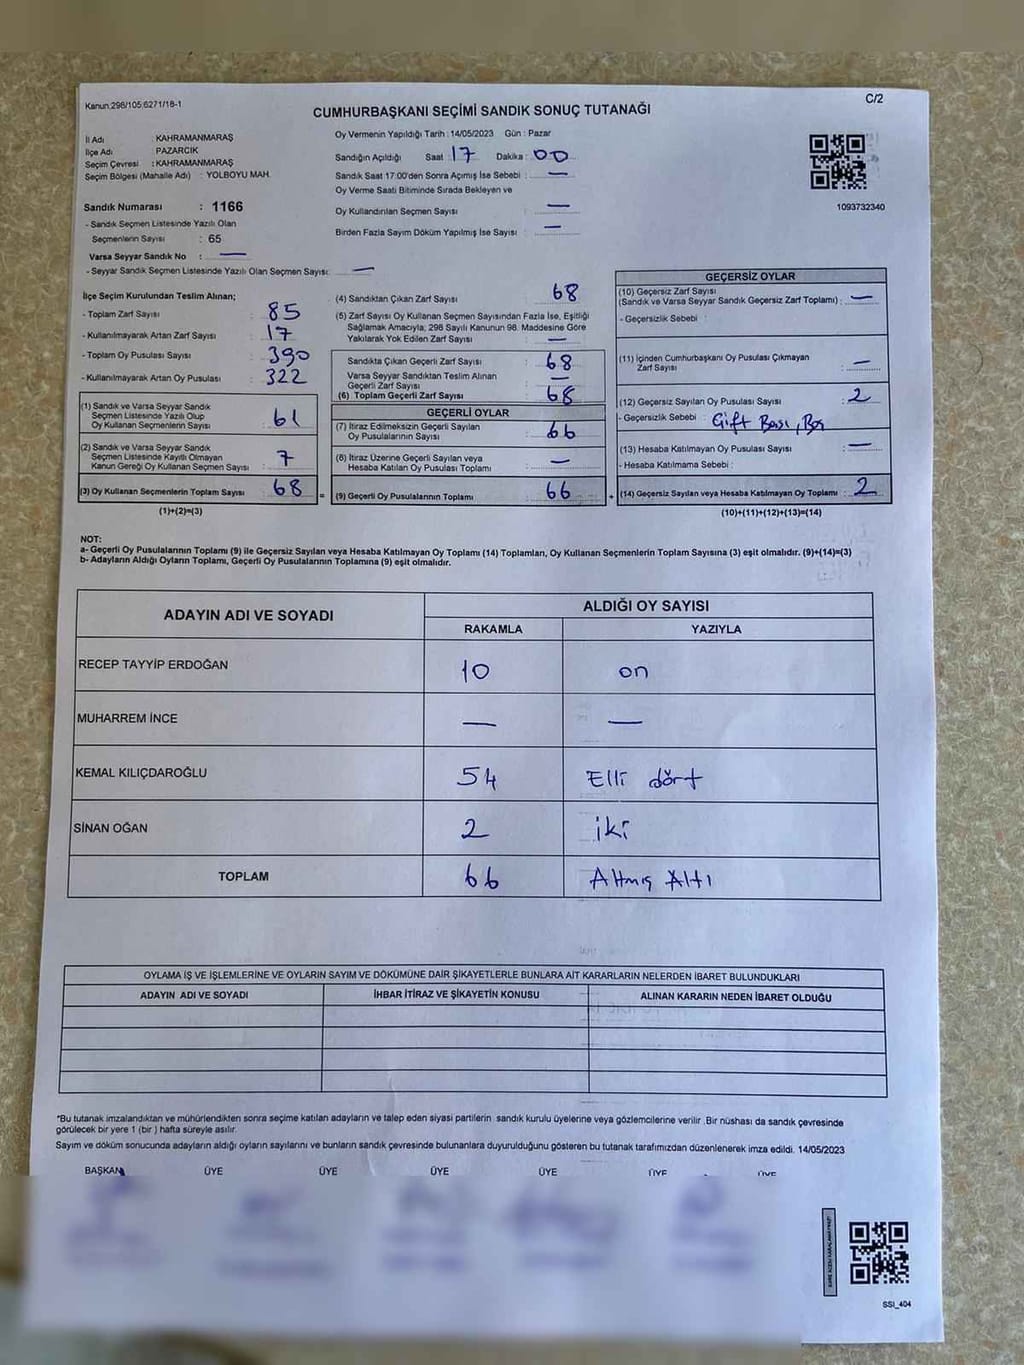 Kanun:298/105;6271/18-1
C/2
CUMHURBAŞKANI SEÇİMİ SANDIK SONUÇ TUTANAĞI
İl Adı : KAHRAMANMARAŞ
İlçe Adı : PAZARCIK
Seçim Çevresi : KAHRAMANMARAŞ
Seçim Bölgesi (Mahalle Adı) : YOLBOYU MAH.
Sandık Numarası : 1166
- Sandık Seçmen Listesinde Yazılı Olan
Seçmenlerin Sayısı : 65
Varsa Seyyar Sandık No : —
- Seyyar Sandık Seçmen Listesinde Yazılı Olan Seçmen Sayısı: —
Oy Vermenin Yapıldığı Tarih : 14/05/2023 Gün : Pazar
Sandığın Açıldığı Saat 17 Dakika : 00
Sandık Saat 17:00'den Sonra Açımış İse Sebebi : —
Oy Verme Saati Bitiminde Sırada Bekleyen ve
Oy Kullandırılan Seçmen Sayısı : —
Birden Fazla Sayım Döküm Yapılmış İse Sayısı : —
1093732340
İlçe Seçim Kurulundan Teslim Alınan;
- Toplam Zarf Sayısı : 85
- Kullanılmayarak Artan Zarf Sayısı : 17
- Toplam Oy Pusulası Sayısı : 390
- Kullanılmayarak Artan Oy Pusulası : 322
(1) Sandık ve Varsa Seyyar Sandık
Seçmen Listesinde Yazılı Olup
Oy Kullanan Seçmenlerin Sayısı : 61
(2) Sandık ve Varsa Seyyar Sandık
Seçmen Listesinde Kayıtlı Olmayan
Kanun Gereği Oy Kullanan Seçmen Sayısı : 7
(3) Oy Kullanan Seçmenlerin Toplam Sayısı : 68
(1)+(2)=(3)
(4) Sandıktan Çıkan Zarf Sayısı : 68
(5) Zarf Sayısı Oy Kullanan Seçmen Sayısından Fazla İse, Eşitliği
Sağlamak Amacıyla; 298 Sayılı Kanunun 98. Maddesine Göre
Yakılarak Yok Edilen Zarf Sayısı : —
Sandıkta Çıkan Geçerli Zarf Sayısı : 68
Varsa Seyyar Sandıktan Teslim Alınan
Geçerli Zarf Sayısı : —
(6) Toplam Geçerli Zarf Sayısı : 68
GEÇERLİ OYLAR
(7) İtiraz Edilmeksizin Geçerli Sayılan
Oy Pusulalarının Sayısı : 66
(8) İtiraz Üzerine Geçerli Sayılan veya
Hesaba Katılan Oy Pusulası Toplamı : —
= (9) Geçerli Oy Pusulalarının Toplamı : 66
GEÇERSİZ OYLAR
(10) Geçersiz Zarf Sayısı
(Sandık ve Varsa Seyyar Sandık Geçersiz Zarf Toplamı) : —
- Geçersizlik Sebebi :
(11) İçinden Cumhurbaşkanı Oy Pusulası Çıkmayan
Zarf Sayısı : —
(12) Geçersiz Sayılan Oy Pusulası Sayısı : 2
- Geçersizlik Sebebi : Çift Bası, Boş
(13) Hesaba Katılmayan Oy Pusulası Sayısı : —
- Hesaba Katılmama Sebebi :
+ (14) Geçersiz Sayılan veya Hesaba Katılmayan Oy Toplamı : 2
(10)+(11)+(12)+(13)=(14)
NOT:
a- Geçerli Oy Pusulalarının Toplamı (9) ile Geçersiz Sayılan veya Hesaba Katılmayan Oy Toplamı (14) Toplamları, Oy Kullanan Seçmenlerin Toplam Sayısına (3) eşit olmalıdır. (9)+(14)=(3)
b- Adayların Aldığı Oyların Toplamı, Geçerli Oy Pusulalarının Toplamına (9) eşit olmalıdır.
ADAYIN ADI VE SOYADI
ALDIĞI OY SAYISI
RAKAMLA YAZIYLA
RECEP TAYYİP ERDOĞAN 10 on
MUHARREM İNCE — —
KEMAL KILIÇDAROĞLU 54 Elli dört
SİNAN OĞAN 2 iki
TOPLAM 66 Altmış Altı
OYLAMA İŞ VE İŞLEMLERİNE VE OYLARIN SAYIM VE DÖKÜMÜNE DAİR ŞİKAYETLERLE BUNLARA AİT KARARLARIN NELERDEN İBARET BULUNDUKLARI
ADAYIN ADI VE SOYADI İHBAR İTİRAZ VE ŞİKAYETİN KONUSU ALINAN KARARIN NEDEN İBARET OLDUĞU
*Bu tutanak imzalandıktan ve mühürlendikten sonra seçime katılan adayların ve talep eden siyasi partilerin sandık kurulu üyelerine veya gözlemcilerine verilir .Bir nüshası da sandık çevresinde
görülecek bir yere 1 (bir ) hafta süreyle asılır.
Sayım ve döküm sonucunda adayların aldığı oyların sayılarını ve bunların sandık çevresinde bulunanlara duyurulduğunu gösteren bu tutanak tarafımızdan düzenlenerek imza edildi. 14/05/2023
BAŞKAN ÜYE ÜYE ÜYE ÜYE ÜYE ÜYE
SSI_404